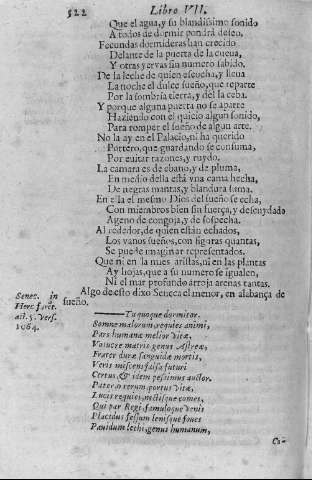 522
Libro VII.
Que el agua, y su blandissimo sonido
A todos de dormir pondrá deseo.
Fecundas dormideras han crecido
Delante de la puerta de la cueua,
Y otras yeruas sin numero sabido.
De la leche de quien escucha, y lleua
La noche el dulce sueño, que reparte
Por la sombria tierra, y del la ceba.
Y porque alguna puerta no se aparte
Haziendo con el quicio algun sonido,
Para romper el sueño de algun arte.
No la ay en el Palacio, ni ha querido
Portero, que guardando se consuma,
Por euitar razones, y ruydo.
La camara es de ebano, y de pluma,
En medio della està vna cama hecha,
De negras mantas, y blandura suma.
En ella el mesmo Dios del sueño se echa,
Con miembros bien sin fuerça, y desnudado
Ageno de congoja, y de sospecha.
Al rededor, de quien están echados,
Los vanos sueños, con figuras quantas,
Se puede imaginar representados.
Que ni en la mies arillas, ni en las plantas
Ay hojas, que a su numero se igualen,
Ni el mar profundo arroja arenas tantas.
Algo de esto dixo Seneca el menor, en alabança de
sueño.
Senec. in
Herc. furẽt.
act. 5. vers.
1064.
Tu quoque domitor.
Somne malorum, requies animi,
Pars humanæ melior vitæ,
Volucre matris genus Astreæ,
Frater duræ languidæ mortis,
Veris miscens falsa futuri
Certus, & idem pessimus auctor.
Pater ò rerum, portus vitæ,
Lucis requies, noctisque comes,
Qui par Regi, famuloque venis
Placidus fessum lenisque foues
Pauidum lethi, genus humanum,
Co-